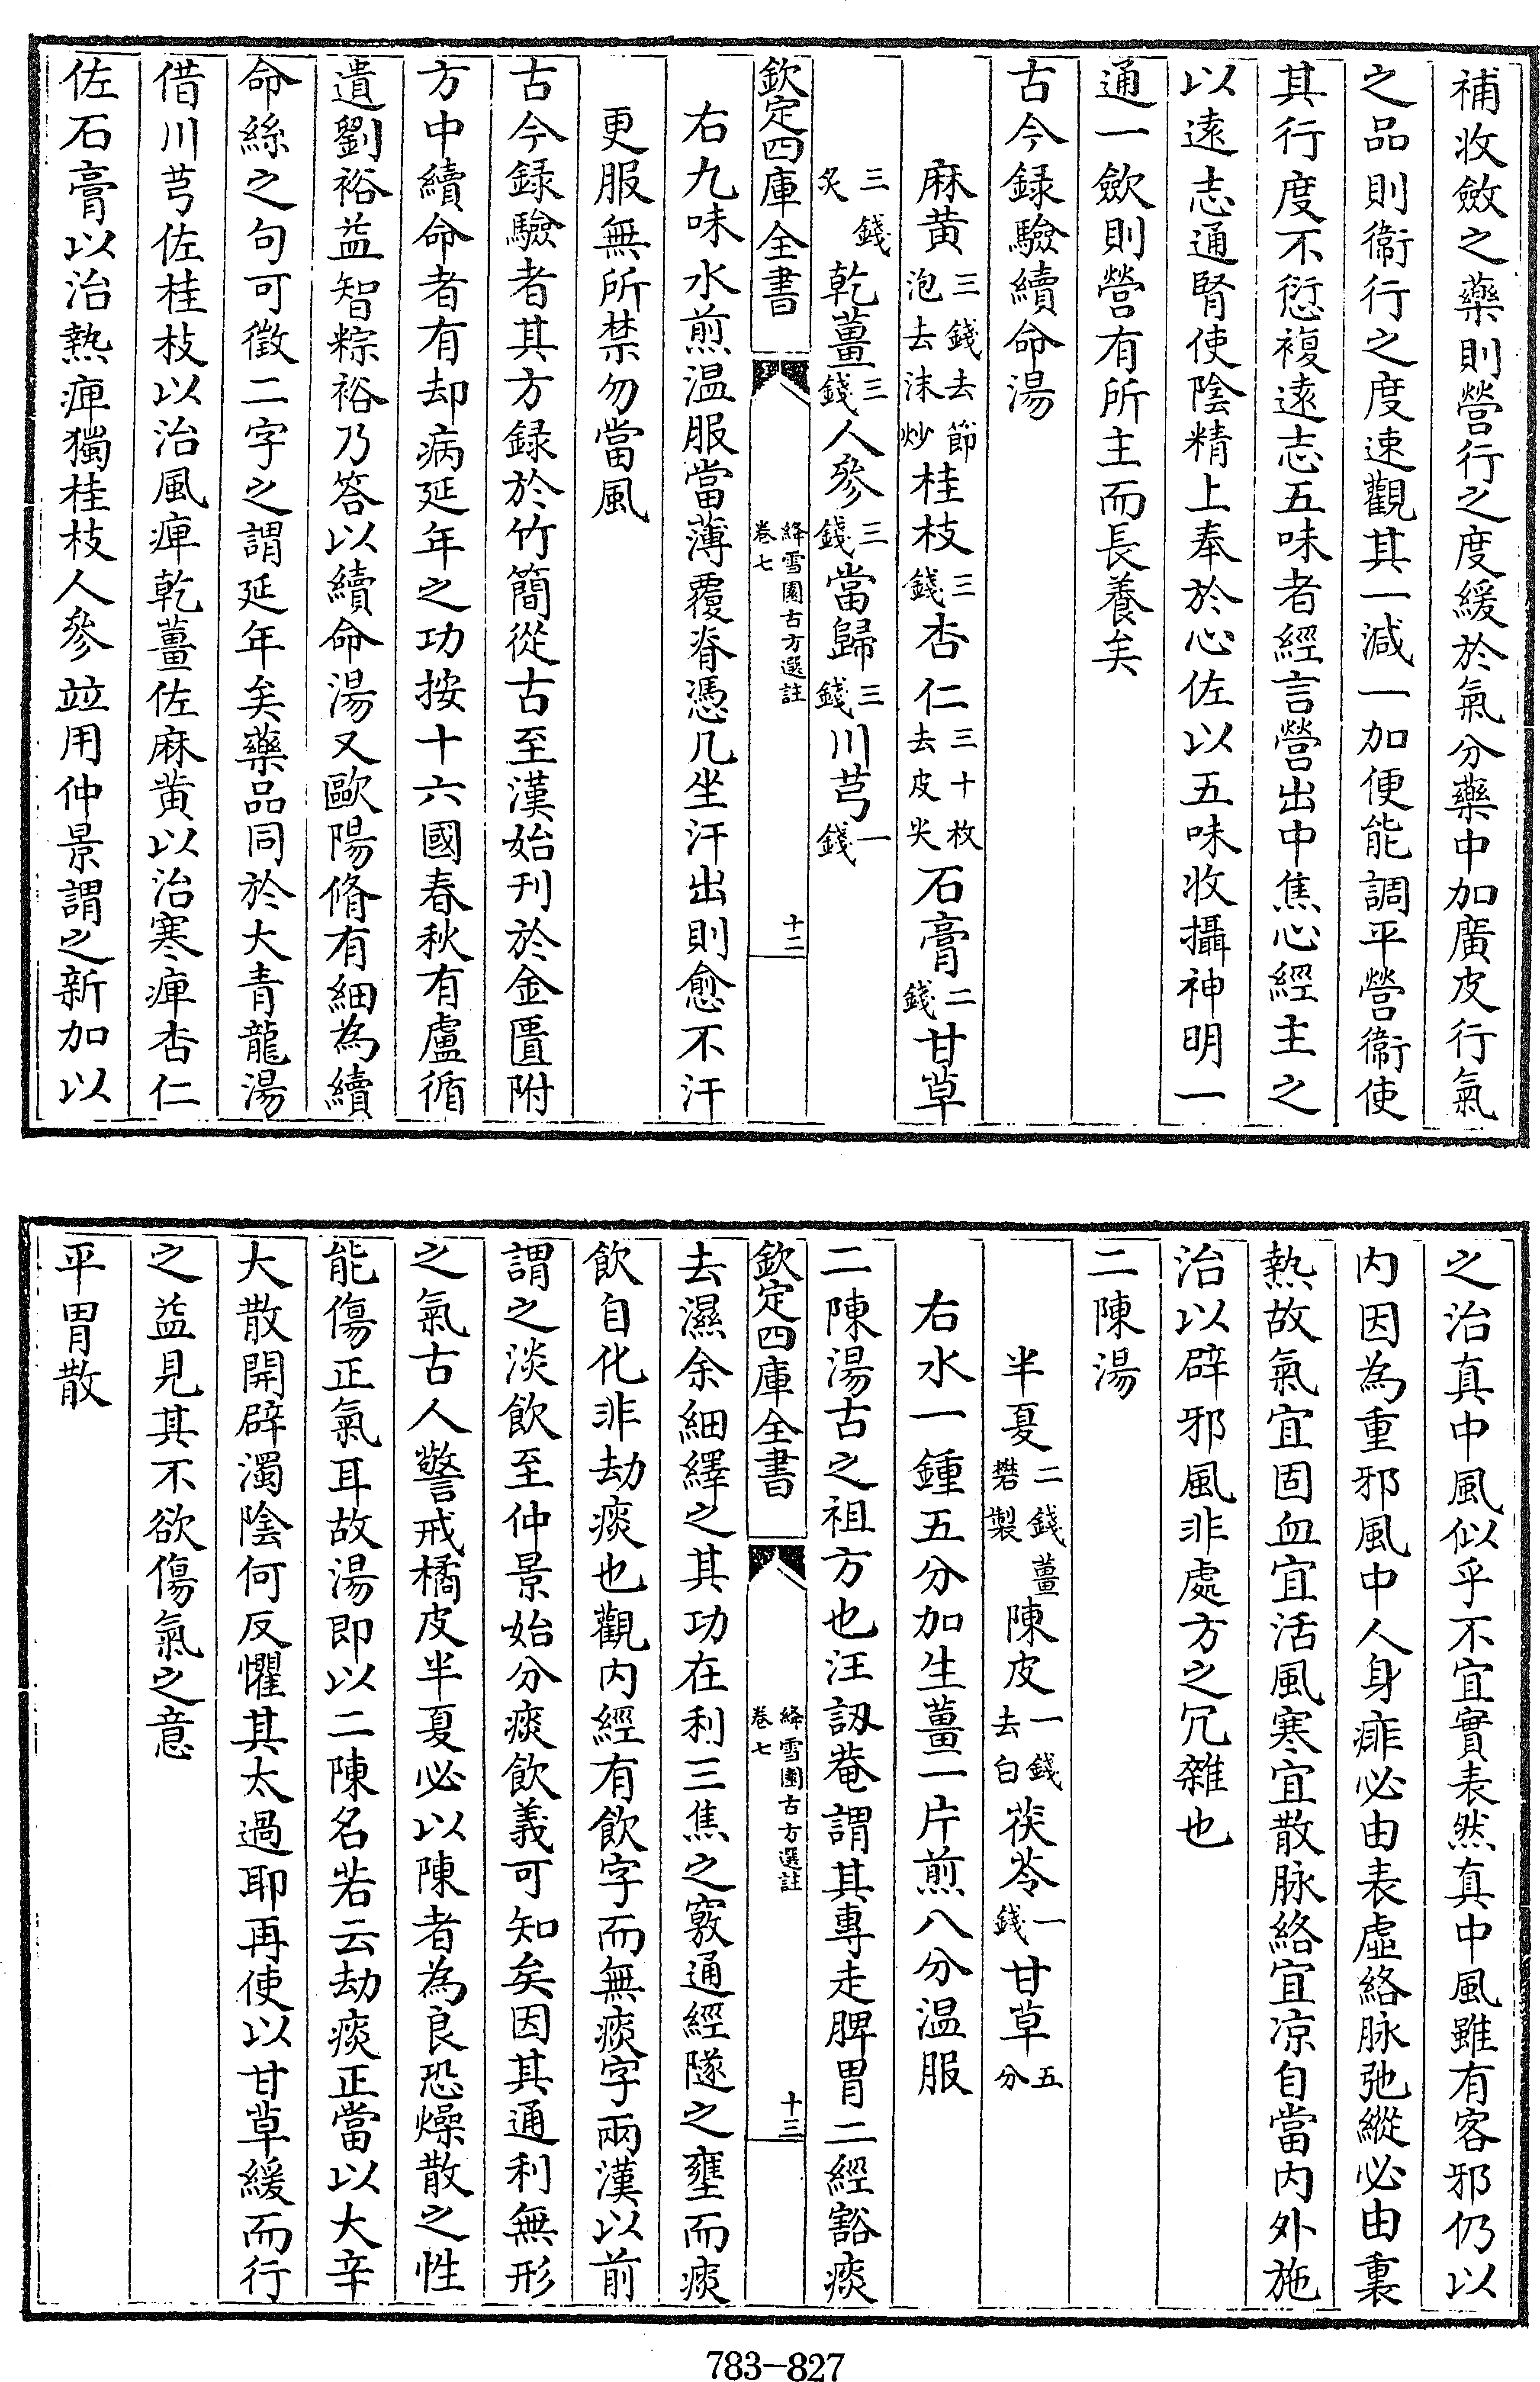 補收斂之藥則營行之度緩於氣分藥中加廣皮行氣
之品則衞行之度速觀其一減一加便能調平營衞使
其行度不愆複遠志五味者經言營出中焦心經主之
以遠志通腎使陰精上奉於心佐以五味收攝神明一
通一斂則營有所主而長養矣
古今録驗續命湯
麻黄三錢去節泡去沫炒桂枝三錢杏仁三十枚去皮尖石膏二錢甘草
三錢炙乾薑三錢人參三錢當歸三錢川芎一錢
欽定四庫全書
絳雪園古方選註
卷七
十二
右九味水煎温服當薄覆脊憑几坐汗出則愈不汗
更服無所禁勿當風
古今録驗者其方録於竹簡從古至漢始刊於金匱附
方中續命者有却病延年之功按十六國春秋有盧循
遺劉裕益智粽裕乃答以續命湯又歐陽脩有細為續
命絲之句可徵二字之謂延年矣藥品同於大青龍湯
借川芎佐桂枝以治風痺乾薑佐麻黄以治寒痺杏仁
佐石膏以治熱痺獨桂枝人參竝用仲景謂之新加以
之治真中風似乎不宜實表然真中風雖有客邪仍以
内因為重邪風中人身痱必由表虛絡脉弛縱必由裏
熱故氣宜固血宜活風寒宜散脉絡宜凉自當内外施
治以辟邪風非處方之冗雜也
二陳湯
半夏二錢薑礬製陳皮一錢去白茯苓一錢甘草五分
右水一鍾五分加生薑一片煎八分温服
二陳湯古之祖方也汪訒菴謂其專走脾胃二經豁痰
欽定四庫全書
絳雪園古方選註
卷七
十三
去濕余細繹之其功在利三焦之竅通經隧之壅而痰
飲自化非劫痰也觀内經有飲字而無痰字兩漢以前
謂之淡飲至仲景始分痰飲義可知矣因其通利無形
之氣古人警戒橘皮半夏必以陳者為良恐燥散之性
能傷正氣耳故湯即以二陳名若云劫痰正當以大辛
大散開辟濁陰何反懼其太過耶再使以甘草緩而行
之益見其不欲傷氣之意
平胃散
783-827